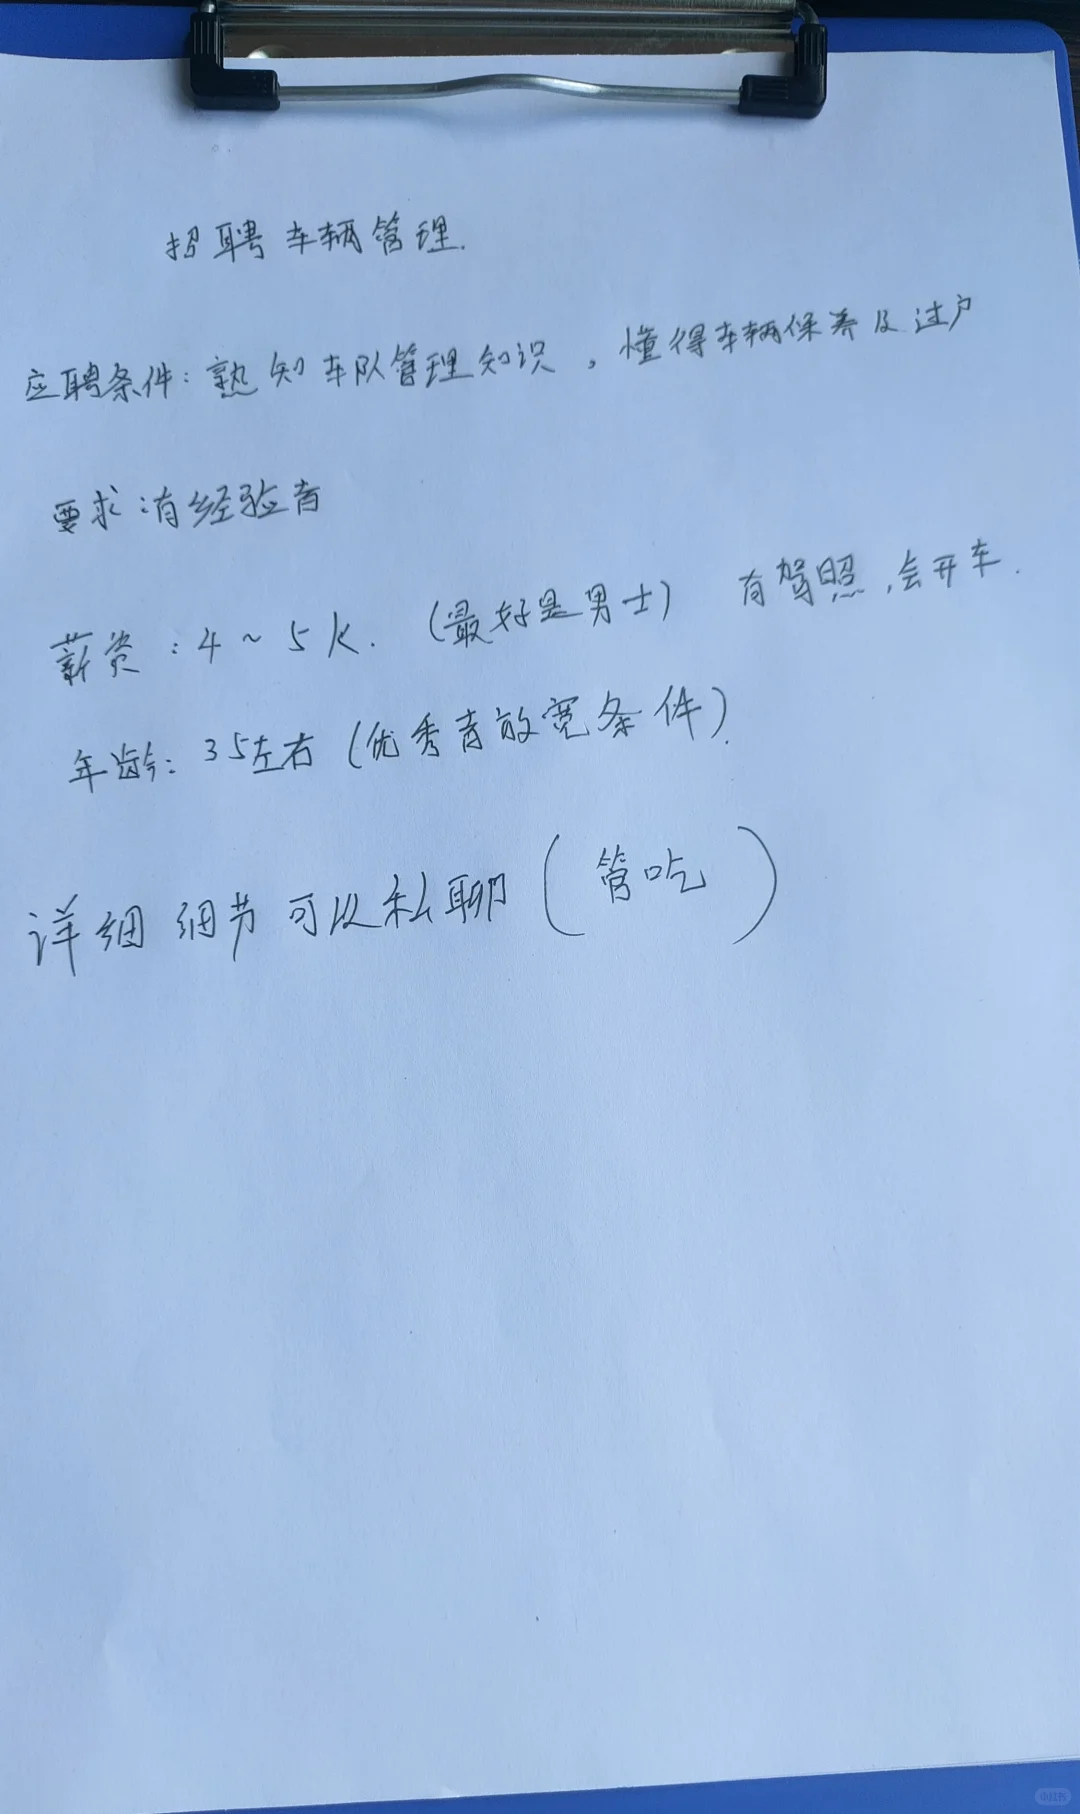 招聘车辆管理.
应聘条件:熟知车队管理知识,懂得车辆保养及过户
要求:有经验者
薪资:4~5K.(最好是男士) 有驾照,会开车.
年龄:35左右(优秀者放宽条件).
详细细节可以私聊(管吃)
小红书